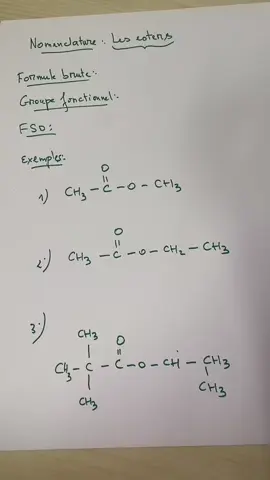 Nomenclature: Les esters
Formule brute:
Groupe fonctionnel:
FSD:
Exemples:
O
1) CH3 - C - O - CH3
O
2) CH3 - C - O - CH2 - CH3
CH3 O
3) CH3 - C - C - O - CH - CH3
CH3 CH3